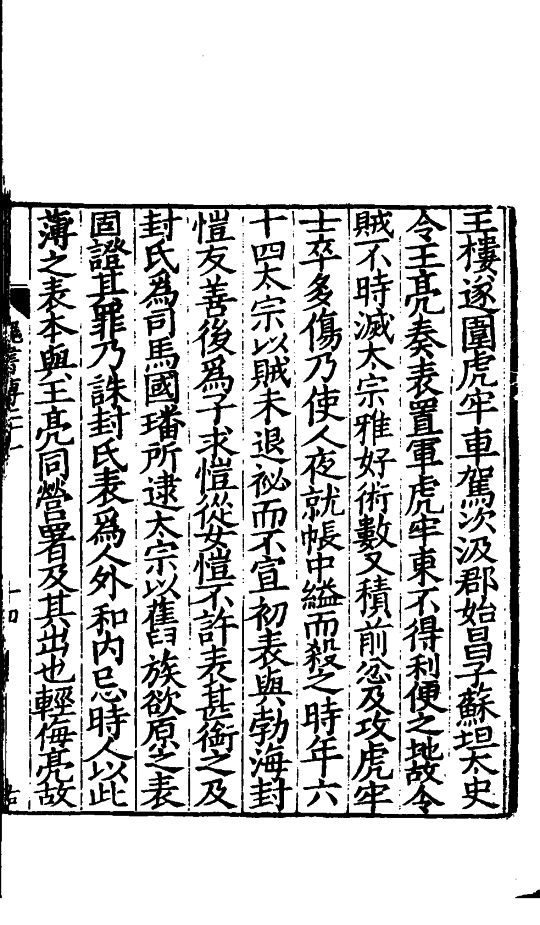 王樓遂圍虎牢車駕次汲郡始昌子蘇坦太史
令王亮奏表置軍虎牢東不得利便之地故令
賊不時滅太宗雅好術數又積前忿及攻虎牢
士卒多傷乃使人夜就帳中縊而殺之時年六
十四太宗以賊未退祕而不宣初表與勃海封
愷友善後爲子求愷從女愷不許表甚銜之及
封氏爲司馬國璠所逮太宗以舊族欲原之表
固證其罪乃誅封氏表爲人外和内忌時人以此
薄之表本與王亮同營署及其出也輕侮亮故